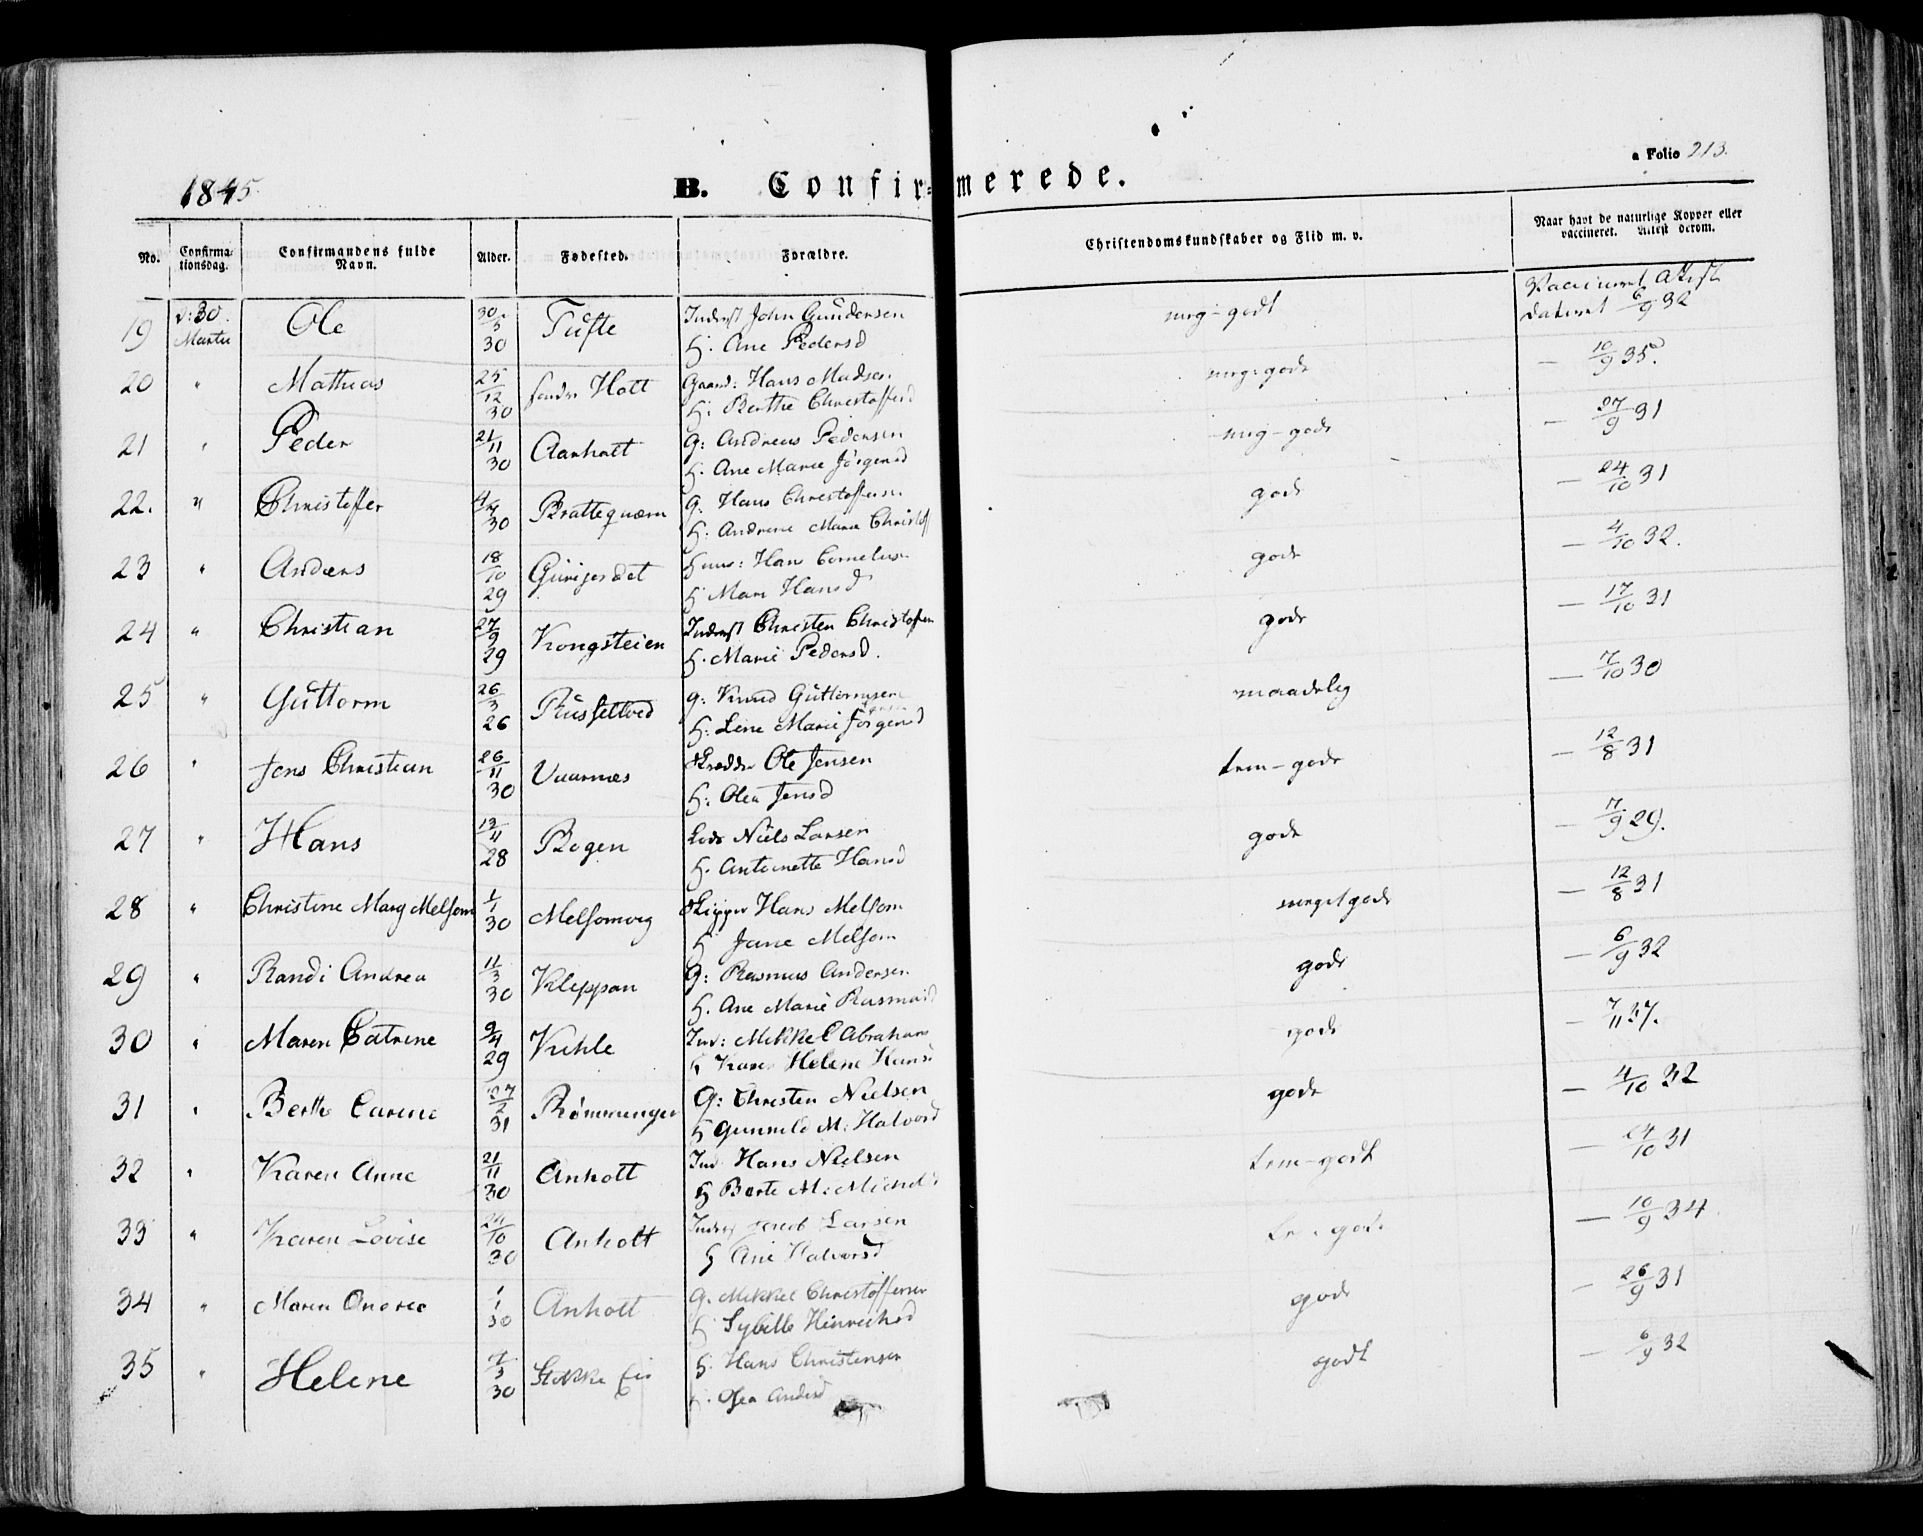 a Folio 213.
1845.
B. Confir=merede.
No. Confirma-tionsdag. Confirmandens fulde Navn. Alder. Fødested. Forældre. Christendomskundskaber og Flid m. v. Naar havt de naturlige Kopper eller vaccineret. Attest derom.
19 d: 30. Martii Ole 30/3 30 Tufte Inderst John Gundersen meg-godt Vaccineret Attest
H. Ane Pedersd dateret 6/9 32
20 " Mathias 25/12 30 søndr Holt Gaard: Hans Madsen meg-godt — 10/9 35.
H: Berthe Christoffersd
21 " Peder 21/11 30 Aanholt G: Andreas Pedersen meg-godt — 27/9 31
H. Ane Marie Jørgensd
22. " Christoffer 4/4 30 Brattequærn G. Hans Christoffersen godt — 24/10 31
H: Andrene Marie Christof
23 " Anders 18/10 29 Gurigerdet Huus: Hans Cornelius godt — 4/10 32.
H Mare Hansd
24 " Christian 27/9 29 Kongsteien Inderst Christen Christofersen godt — 17/10 31
H. Marie Pedersd.
25 " Guttorm 26/3 26 Russeltved G: Knud Guttormsen maadelig — 7/10 30
H: Line Marie Jørgensd
26 " Jens Christian 26/11 30 Vaarnæs Skrædder Ole Jensen tem-godt — 12/8 31
H: Olea Jensd
27 " Hans 13/4 28 Bogen Lods Niels Larsen godt — 7/9 29.
H. Antonette Hansd
28 " Christine Marg Melsom 1/1 30 Melsomvig Skipper Hans Melsom meget godt — 12/8 31
H Jane Melsom
29 " Randi Andrea 11/3 30 Kleppan G: Rasmus Andersen godt — 6/9 32
H. Ane Marie Rasmusd
30 " Maren Catrine 9/4 29 Kihle Ind: Mikkel Abrahams godt — 7/11 37.
H Karen Helene Hansd
31 " Berthe Carine 27/2 31 Rømminger G: Christen Nielsen godt — 4/10 32
H Gunnild M: Halvorsd
32 " Karen Anne 21/11 30 Anholt Ind. Hans Nielsen tem-godt — 24/10 31
H Berte M: Michelsd
33 " Karen Lovise 24/10 30 Anholt Inderst Jacob Larsen godt — 10/9 34
H Ane Halvorsd
34 " Maren Andrea 1/1 30 Anholt G. Mikkel Christoffersen godt — 26/9 31
H Sybille Hinrichsd
35 " Helene 7/3 30 Stokke H. Hans Christensen godt — 6/9 32
H. Olea Andersd